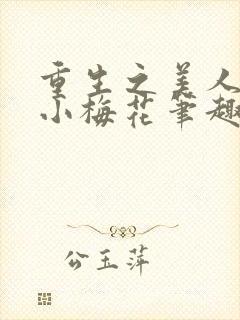 重生之美人
小梅花笔趣
公玉萍